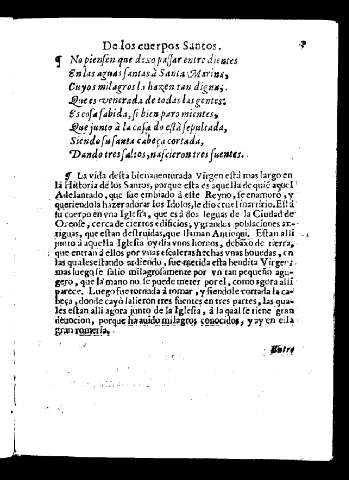 De los cuerpos Santos.
¶ No piensen que dexo passar entre dientes
En las aguas santas à Santa Marina,
Cuyos milagros la hazen tan digna,
Que es venerada de todas las gentes:
Es cosa sabida, si bien paro mientes,
Que junto à la casa do està sepultada,
Siendo su santa cabeça cortada,
Dando tres saltos, nascieron tres fuentes.
¶ La vida desta bienauenturada Virgen està mas largo en
la Historia de los Santos, porque esta es aquella de quiē aquel
Adelantado, que fue embiado à este Reyno, se enamorò, y
queriendola hazer adorar los Idolos, le dio cruel martirio. Està
su cuerpo en vna Iglesia, que es à dos leguas de la Ciudad de
Orense, cerca de ciertos edificios, y grandes poblaciones an-
tiguas, que estan destruidas, que llaman Antioqui. Estan alli
junto à aquella Iglesia oy dia vnos hornos, debaxo de tierra,
que entran à ellos por vnas escaleras hechas vnas bouedas, en
las quales estando ardiendo, fue metida esta bendita Virgen:
mas luego se salio milagrosamente por vn tan pequeño agu-
gero, que la mano no se puede meter por el, como agora alli
parece. Luego fue tornada à tomar, y siendole cortada la ca-
beça, donde cayò salieron tres fuentes en tres partes, las qua-
les estan alli agora junto de la Iglesia, à la qual se tiene gran
deuocion, porque ha auido milagros conocidos, y ay en ella
gran romeria.
Entre